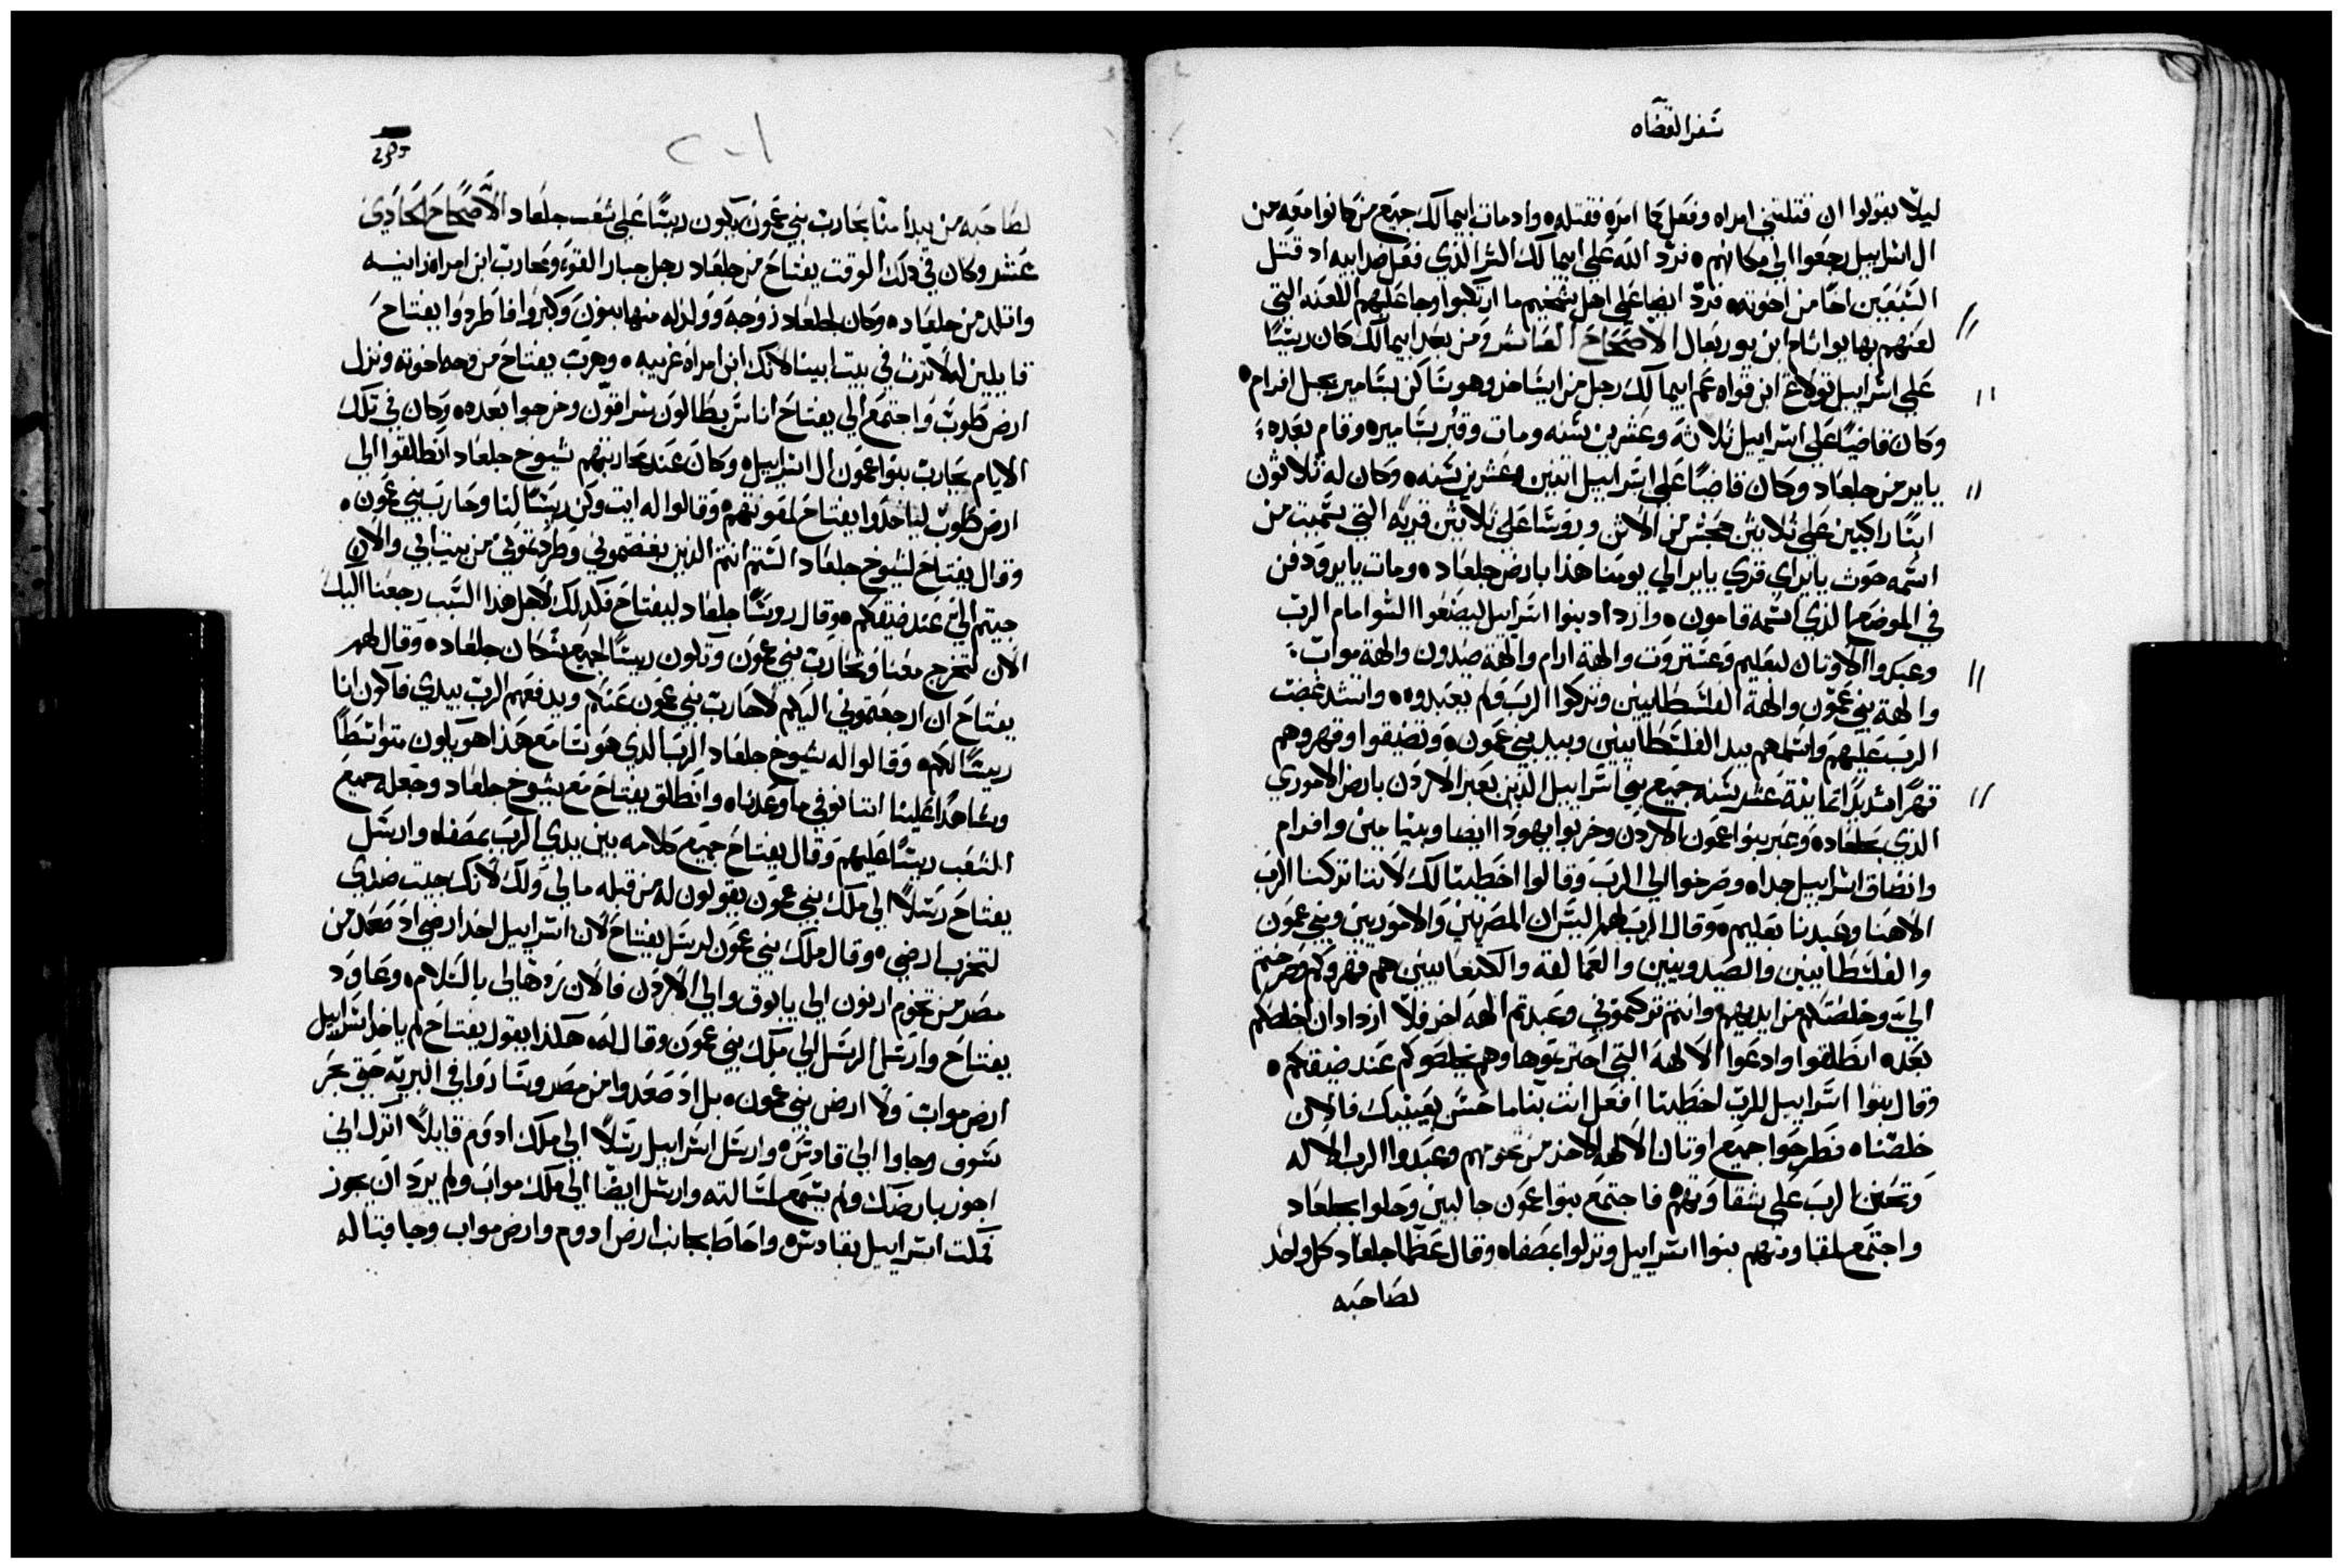 سفر القضاه
ليلا يقولوا ان قتلتني امراه وفعل كما امره فقتله ه واد مات ابيمالك جميع من كانوا معه من
ال اسراييل رجعوا الي مكانهم ه فرد الله علي ابيمالك الشر الذي فعل ضد ابيه اد قتل
السبعين اخا من اخوته ه فرد ايضا علي اهل شخيم ما ارتكبوا وجا عليهم اللعنه التي
لعنهم بها يواثام ابن يوربعال الاصحاح العاشر ومن بعد ابيمالك كان رييسا
علي اسراييل تولاع ابن فواه عم ابيمالك رجل من ايساخر وهو ساكن بشامير بجبل افرام ه
وكان قاضيا علي اسراييل ثلاثة وعشرين سنه ومات وقبر بشامير ه وقام بعده
يابر من جلعاد وكان قاضيا علي اسراييل اتنين وعشرين سنه ه وكان له ثلاثون
ابنا راكبين علي ثلاثين جحش من الاتن وروسا علي ثلاثين قريه التي سميت من
اسمه حوث يابر اي قري يابر الي يومنا هذا بارض جلعاد ه ومات يابر ودفن
في الموضع الذي اسمه قامون ه وازداد بنوا اسراييل ليصنعوا السوا امام الرب
وعبدوا الاوتان لبعليم وعستروت والهة ارام والهة صيدون والهة مواب
والهة بني عمون والهة الفلسطانيين وتركوا الرب ولم يعبدوه ه واشتد غضب
الرب عليهم واسلمهم بيد الفلسطانيين وبيد بني عمون ه وتضيقوا وقهروهم
قهرا شديدا تمانية عشر سنه جميع بني اسراييل الذين بعبر الاردن بارض الاموري
الذي بجلعاد ه وعبر بنوا عمون الاردن وخربوا يهودا ايضا وبنيامين وافرام
وانضاق اسراييل جدا ه وصرخوا الي الرب وقالوا اخطينا لك لاننا تركنا الرب
الاهنا وعبدنا بعليم ه وقال الرب لهم اليس ان المصريين والاموريين وبني عمون
والفلسطانيين والصيدونيين والعمالقه والكنعانيين هم قهروكم وصرختم
الي وخلصتكم من ايديهم وانتم تركتموني وعبدتم الهه اخر فلا ازداد ان اخلصكم
بعد ه انطلقوا وادعوا الالهه التي اخترتموها وهم يخلصوكم عند ضيقتكم ه
وقال بنوا اسراييل للرب اخطينا افعل انت بنا ما حسن بعينيك فالان
خلصنا ه فطرحوا جميع اوتان الالهه الاخر من تخومهم وعبدوا الرب الاله
وتحنن الرب علي شقاوتهم ه فاجتمع بنوا عمون جالبين وحلوا بجلعاد
واجتمع للقاوتهم بنوا اسراييل ونزلوا بمصفاه وقال عظما جلعاد كل واحد
لصاحبه
لصاحبه من يبدا منا يحارب بني عمون يكون رييسا علي شعب جلعاد الاصحاح الحادي
عشر وكان في ذلك الوقت يفتاح من جلعاد رجل جبار القوه ومحارب ابن امراه زانيه
واتلد من جلعاد ه وكان لجلعاد زوجه وولد له منها بنون وكبروا فاطردوا يفتاح
قايلين له لا ترث في بيت ابينا لانك ابن امراه غريبه ه وهرب يفتاح من وجه اخوته ونزل
ارض طوب واجتمع الي يفتاح اناس بطالون سراقون وخرجوا بعده ه وكان في تلك
الايام يحارب بنوا عمون ال اسراييل ه وكان عند محاربتهم شيوخ جلعاد انطلقوا الي
ارض طوب لياخذوا يفتاح لمعونتهم ه وقالوا له ايت وكن رييسا لنا وحارب بني عمون ه
وقال يفتاح لشيوخ جلعاد الستم انتم الذين بغضتموني وطردتموني من بيت ابي والان
جيتم الي عند ضيقكم ه وقال روسا جلعاد ليفتاح فكذلك لاجل هذا السبب رجعنا اليك
الان لتخرج معنا وتحارب بني عمون وتكون رييسا لجميع سكان جلعاد ه وقال لهم
يفتاح ان ارجعتموني اليكم لاحارب بني عمون عنكم ويدفعهم الرب بيدي فاكون انا
رييسا لكم ه وقالوا له شيوخ جلعاد الرب الذي هو سامع هذا هو يكون متواسطا
وشاهدا علينا اننا نوفي ما وعدناه وانطلق يفتاح مع شيوخ جلعاد وجعله جميع
الشعب رييسا عليهم وقال يفتاح جميع كلامه بين يدي الرب بمصفاه وارسل
يفتاح رسلا الي ملك بني عمون يقولون له من قبله مالي ولك لانك جيت ضدي
لتخرب ارضي ه وقال ملك بني عمون لرسل يفتاح لان اسراييل اخد ارضي اد صعد من
مصر من تخوم ارنون الي يابوق والي الاردن فالان ردها لي بالسلام ه وعاود
يفتاح وارسل الرسل الي ملك بني عمون وقال له ه هكذا يقول يفتاح لم ياخد اسراييل
ارض مواب ولا ارض بني عمون ه بل اد صعدوا من مصر وسادوا في البريه حتي بحر
سوف وجاوا الي قادش ه وارسل اسراييل رسلا الي ملك ادوم قايلا اترك اني
اجوز بارضك ولم يسمع لسالته وارسل ايضا الي ملك مواب ولم يرد ان يجوز
فمكث اسراييل بقادش ه واحاط بجانب ارض ادوم وارض مواب وجا قباله